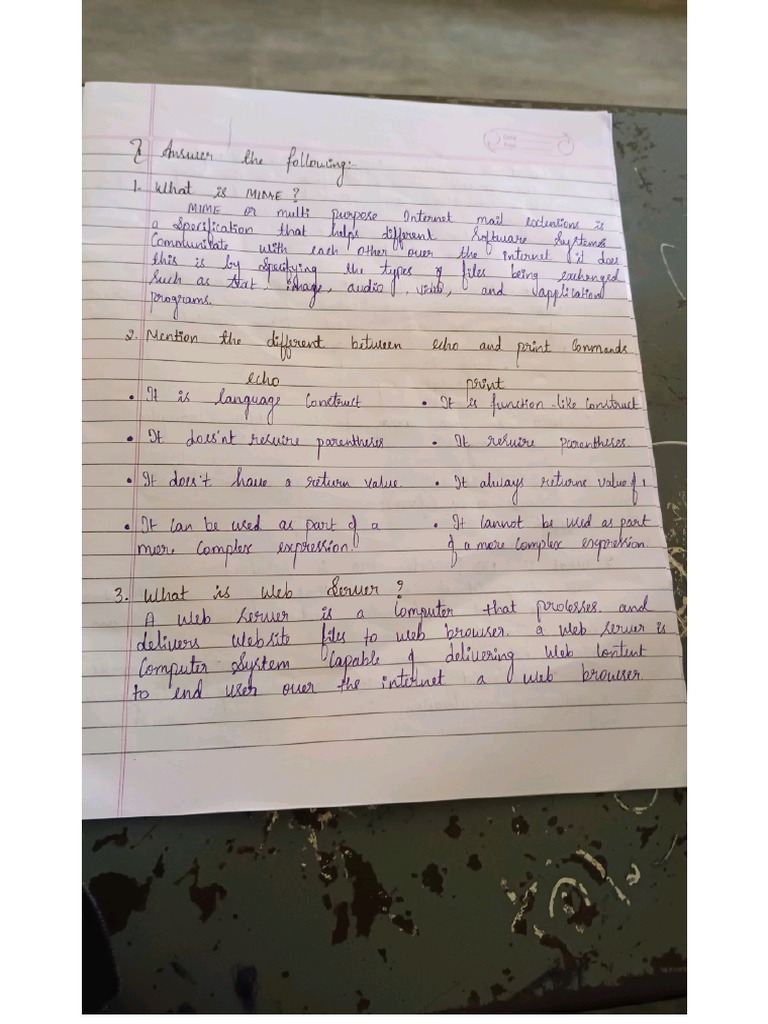 I Answer the following:-
1. What is MIME ?
MIME or multi purpose Internet mail extensions is
a specification that helps different Software Systems
Communicate with each other over the internet it does
this is by specifying the types of files being exchanged
such as text image, audio, video, and application
programs.
2. Mention the different between echo and print Commands
echo print
• It is language Construct • It is function-like Construct
• It does'nt resuire parentheses • It resuire parentheses.
• It does't have a return value. • It always returne value of 1
• It can be used as part of a • It Cannot be used as part
more Complex expression. of a more Complex expression.
3. What is Web Server ?
A Web Server is a Computer that processes and
delivers website files to web browser. a Web server is
Computer System Capable of delivering Web Content
to end user over the internet a web browser.